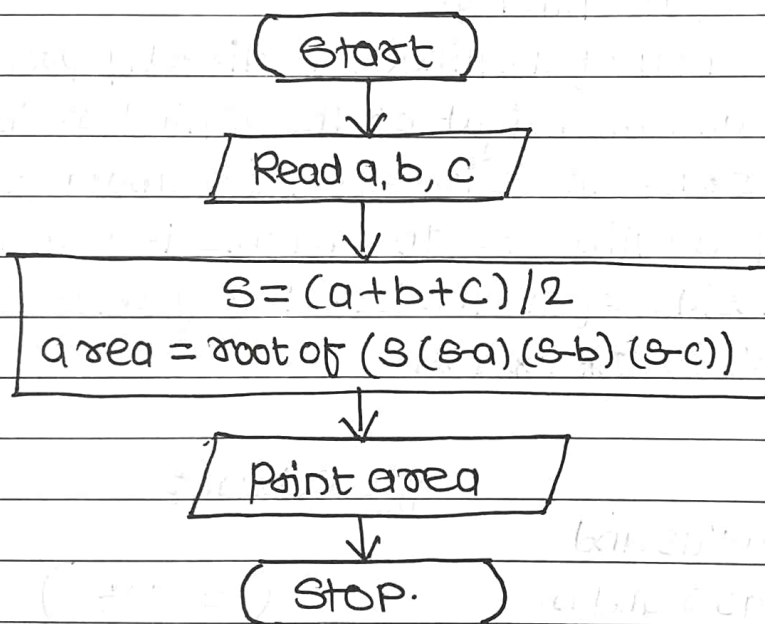 Start
Read a, b, c
S = (a+b+c)/2
area = root of (S(s-a)(s-b)(s-c))
Print area
Stop.